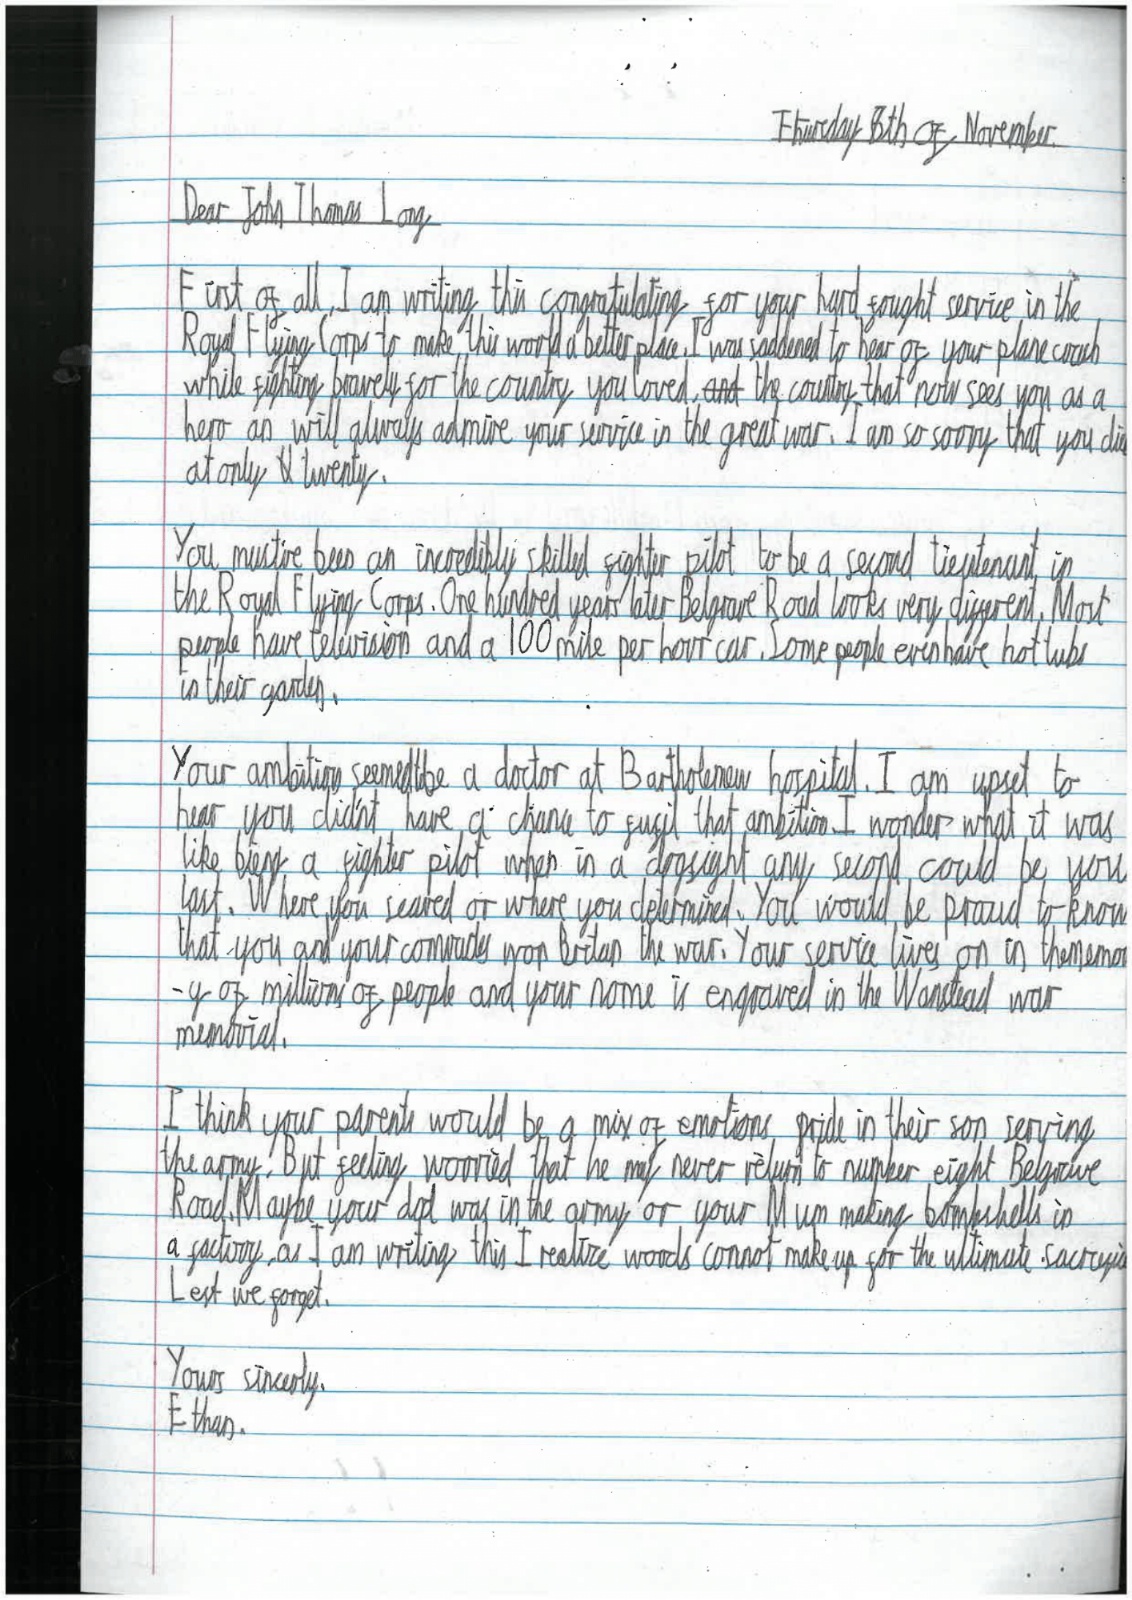 Thursday 8th of November.
Dear John Thomas Long,
First of all, I am writing this congratulating for your hard fought service in the
Royal Flying Corps to make this world a better place. I was saddened to hear of your plane crash
while fighting bravely for the country you loved, and the country that now sees you as a
hero an will always admire your service in the great war. I am so sorry that you die
at only twenty.
You must've been an incredibly skilled fighter pilot to be a second lieutenant in
the Royal Flying Corps. One hundred years later Belgrave Road looks very different. Most
people have television and a 100 mile per hour car. Some people even have hot tubs
in their garden.
Your ambition seemed to be a doctor at Bartholemew hospital. I am upset to
hear you didn't have a chance to fufil that ambition. I wonder what it was
like bieng a fighter pilot when in a dogfight any second could be you
last. Where you scared or where you determined. You would be proud to know
that you and your comrades won Britan the war. Your service lives on in the memor
-y of millions of people and your name is engraved in the Wanstead war
memorial.
I think your parents would be a mix of emotions, pride in their son serving
the army. But feeling worried that he may never return to number eight Belgrave
Road. Maybe your dad was in the army or your Mum making bombshells in
a factory, as I am writing this I realize words cannot make up for the ultimate sacrifi
Lest we forget.
Yours sincerly.
Ethan.